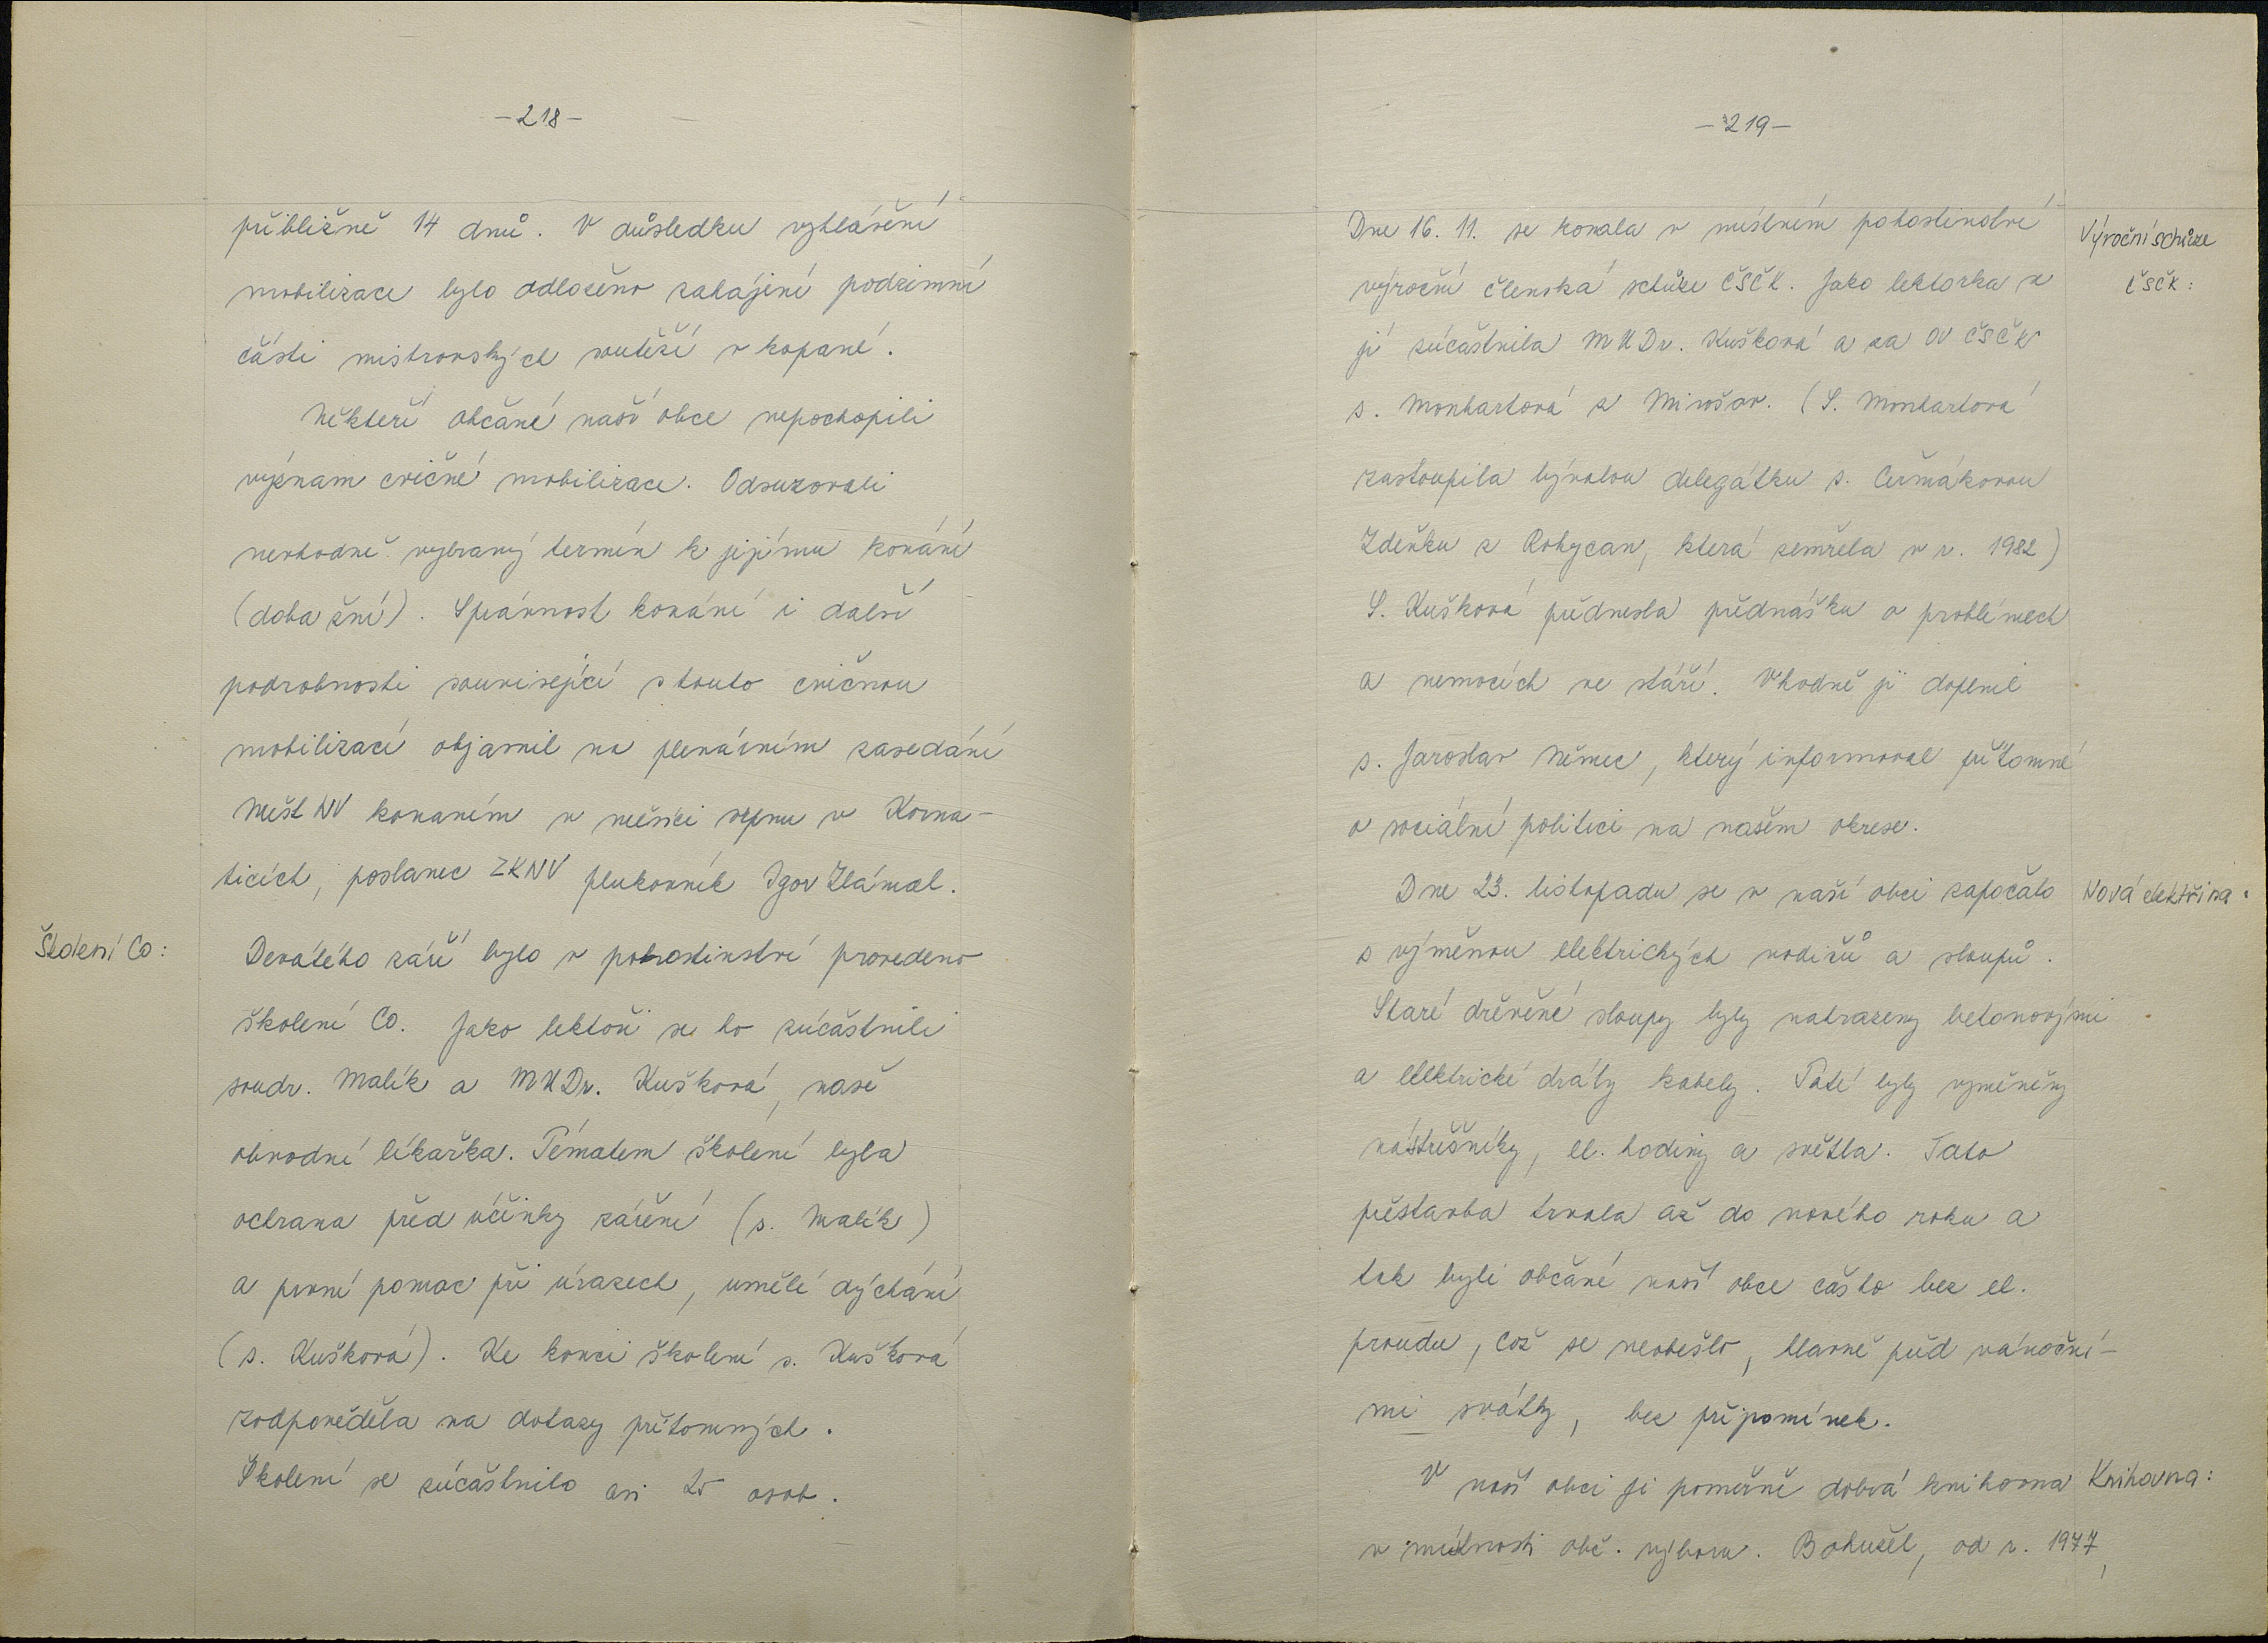 -218-
přibližně 14 dnů. V důsledku vyhlášení
mobilizace bylo odloženo zahájení podzimní
části mistrovských soutěží v kopané.
Někteří občané naší obce nepochopili
význam cvičné mobilizace. Odsuzovali
nevhodně vybraný termín k jejímu konání
(doba žní). Správnost konání i další
podrobnosti související s touto cvičnou
mobilizací objasnil na plenárním zasedání
Měst NV konaném v měsíci srpnu v Korna-
ticích, poslanec ZKNV plukovník Igor Zlámal.
Školení CO:
Devátého září bylo v pohostinství provedeno
školení CO. Jako lektoři se ho zúčastnili
soudr. Malík a MUDr. Kušková, naše
obvodní lékařka. Tématem školení byla
ochrana před účinky záření (s. Malík)
a první pomoc při úrazech, umělé dýchání
(s. Kušková). Ke konci školení s. Kušková
zodpověděla na dotazy přítomných.
Školení se zúčastnilo asi 25 osob.
-219-
Dne 16. 11. se konala v místním pohostinství
Výroční schůze
ČSČK:
výroční členská schůze ČSČK. Jako lektorka se
jí zúčastnila MUDr. Kušková a za OV ČSČK
s. Monhartová z Mirošov. (S. Monhartová
zastoupila bývalou delegátku s. Čermákovou
Zdeňku z Rokycan, která zemřela v r. 1982)
S. Kušková přednesla přednášku o problémech
a nemocích ve stáří. Vhodně ji doplnil
s. Jaroslav Němec, který informoval přítomné
o sociální politice na našem okrese.
Dne 23. listopadu se v naší obci započalo
Nová elektřina:
s výměnou elektrických vodičů a sloupů.
Staré dřevěné sloupy byly nahrazeny betonovými
a elektrické dráty kabely. Také byly vyměněny
nástřešníky, el. hodiny a světla. Tato
přestavba trvala až do nového roku a
tak byli občané naší obce často bez el.
proudu, což se neobešlo, hlavně před vánoční-
mi svátky, bez připomínek.
V naší obci je poměrně dobrá knihovna
Knihovna:
v místnosti obč. výboru. Bohužel, od r. 1977,